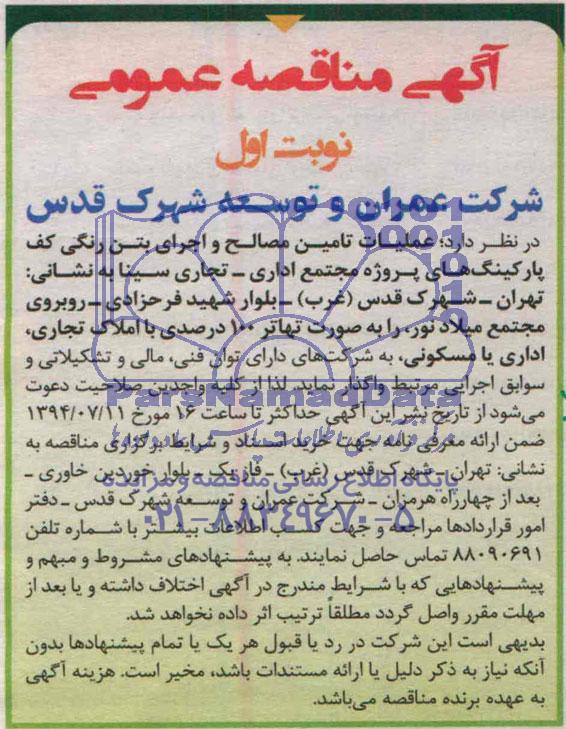 آگهی مناقصه عمومی
نوبت اول
شرکت عمران و توسعه شهرک قدس
در نظر دارد؛ عملیات تامین مصالح و اجرای بتن رنگی کف
پارکینگ‌های پروژه مجتمع اداری ـ تجاری سینا به نشانی:
تهران ـ شهرک قدس (غرب) ـ بلوار شهید فرحزادی ـ روبروی
مجتمع میلاد نور، را به صورت تهاتر ۱۰۰ درصدی با املاک تجاری،
اداری یا مسکونی، به شرکت‌های دارای توان فنی، مالی و تشکیلاتی و
سوابق اجرایی مرتبط واگذار نماید. لذا از کلیه واجدین صلاحیت دعوت
می‌شود از تاریخ نشر این آگهی حداکثر تا ساعت ۱۶ مورخ ۱۳۹۴/۰۷/۱۱
ضمن ارائه معرفی نامه جهت خرید اسناد و شرایط برگزاری مناقصه به
نشانی: تهران ـ شهرک قدس (غرب) ـ فاز یک ـ بلوار خوردین خاوری ـ
بعد از چهارراه هرمزان ـ شرکت عمران و توسعه شهرک قدس ـ دفتر
امور قراردادها مراجعه و جهت کسب اطلاعات بیشتر با شماره تلفن
۸۸۰۹۰۶۹۱ تماس حاصل نمایند. به پیشنهادهای مشروط و مبهم و
پیشنهادهایی که با شرایط مندرج در آگهی اختلاف داشته و یا بعد از
مهلت مقرر واصل گردد مطلقاً ترتیب اثر داده نخواهد شد.
بدیهی است این شرکت در رد یا قبول هر یک یا تمام پیشنهادها بدون
آنکه نیاز به ذکر دلیل یا ارائه مستندات باشد، مخیر است. هزینه آگهی
به عهده برنده مناقصه می‌باشد.
ParsNamadData
پایگاه اطلاع رسانی مناقصه و مزایده
۰۲۱-۸۸۳۴۹۶۷۰-۵